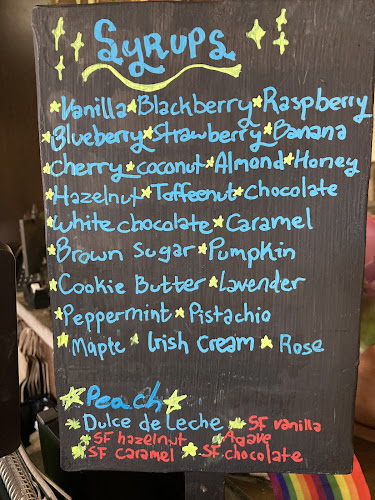 Syrups
Vanilla Blackberry Raspberry
Blueberry Strawberry Banana
Cherry coconut Almond Honey
Hazelnut Toffeenut Chocolate
White chocolate Caramel
Brown Sugar Pumpkin
Cookie Butter Lavender
Peppermint Pistachio
Maple Irish Cream Rose
Peach
Dulce de Leche SF vanilla
SF hazelnut Agave
SF caramel SF chocolate